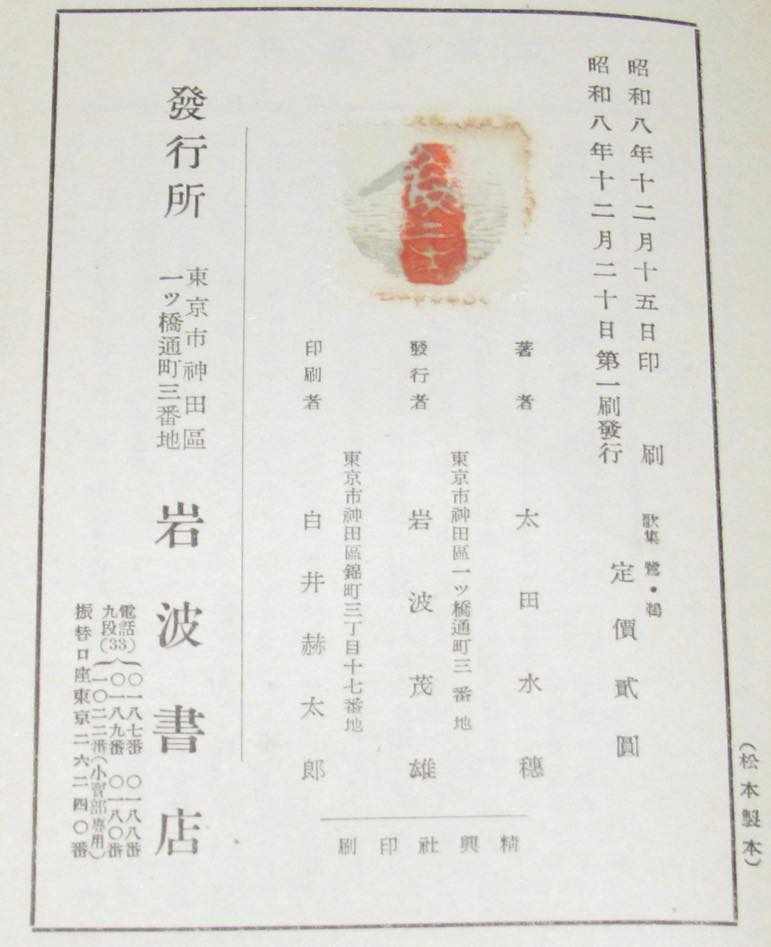 昭和八年十二月十五日印　刷
昭和八年十二月二十日第一刷發行
歌集 鷺・鵜
定價貳圓
著者　太田水穗
東京市神田區一ツ橋通町三番地
發行者　岩波茂雄
東京市神田區錦町三丁目十七番地
印刷者　白井赫太郎
精興社印刷
發行所
東京市神田區
一ツ橋通町三番地
岩波書店
電話
九段(33)
〇一八七番　〇一八八番
〇一八九番　〇一八〇番
一〇二二番(小賣部專用)
振替口座東京二六二四〇番
(松本製本)